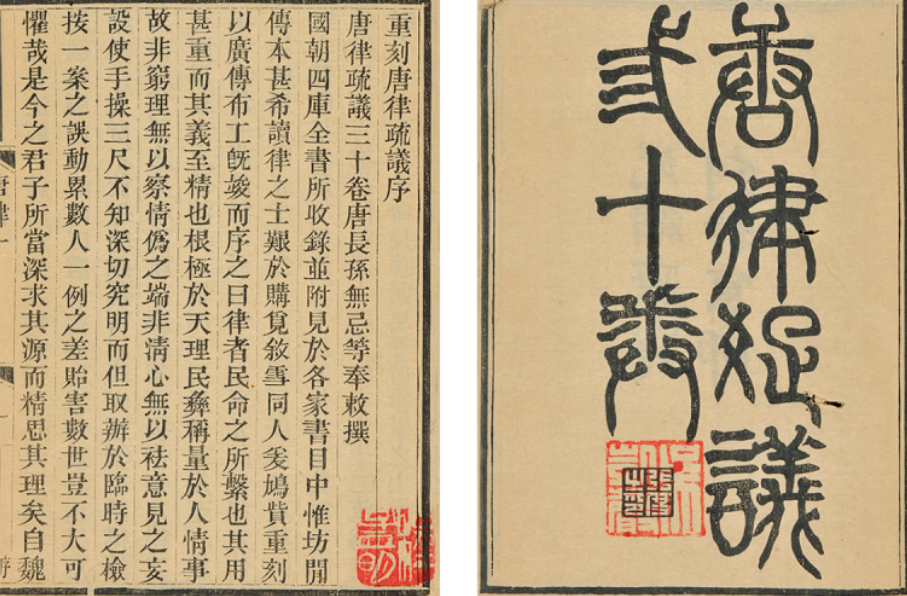 唐律疏議
弎十卷
重刻唐律疏議序
唐律疏議三十卷唐長孫無忌等奉敕撰
國朝四庫全書所收錄並附見於各家書目中惟坊閒
傳本甚希讀律之士艱於購覓敘雪同人爰鳩貲重刻
以廣傳布工旣竣而序之曰律者民命之所繫也其用
甚重而其義至精也根極於天理民彝稱量於人情事
故非窮理無以察情僞之端非清心無以祛意見之妄
設使手操三尺不知深切究明而但取辦於臨時之檢
按一案之誤動累數人一例之差貽害數世豈不大可
懼哉是今之君子所當深求其源而精思其理矣自魏